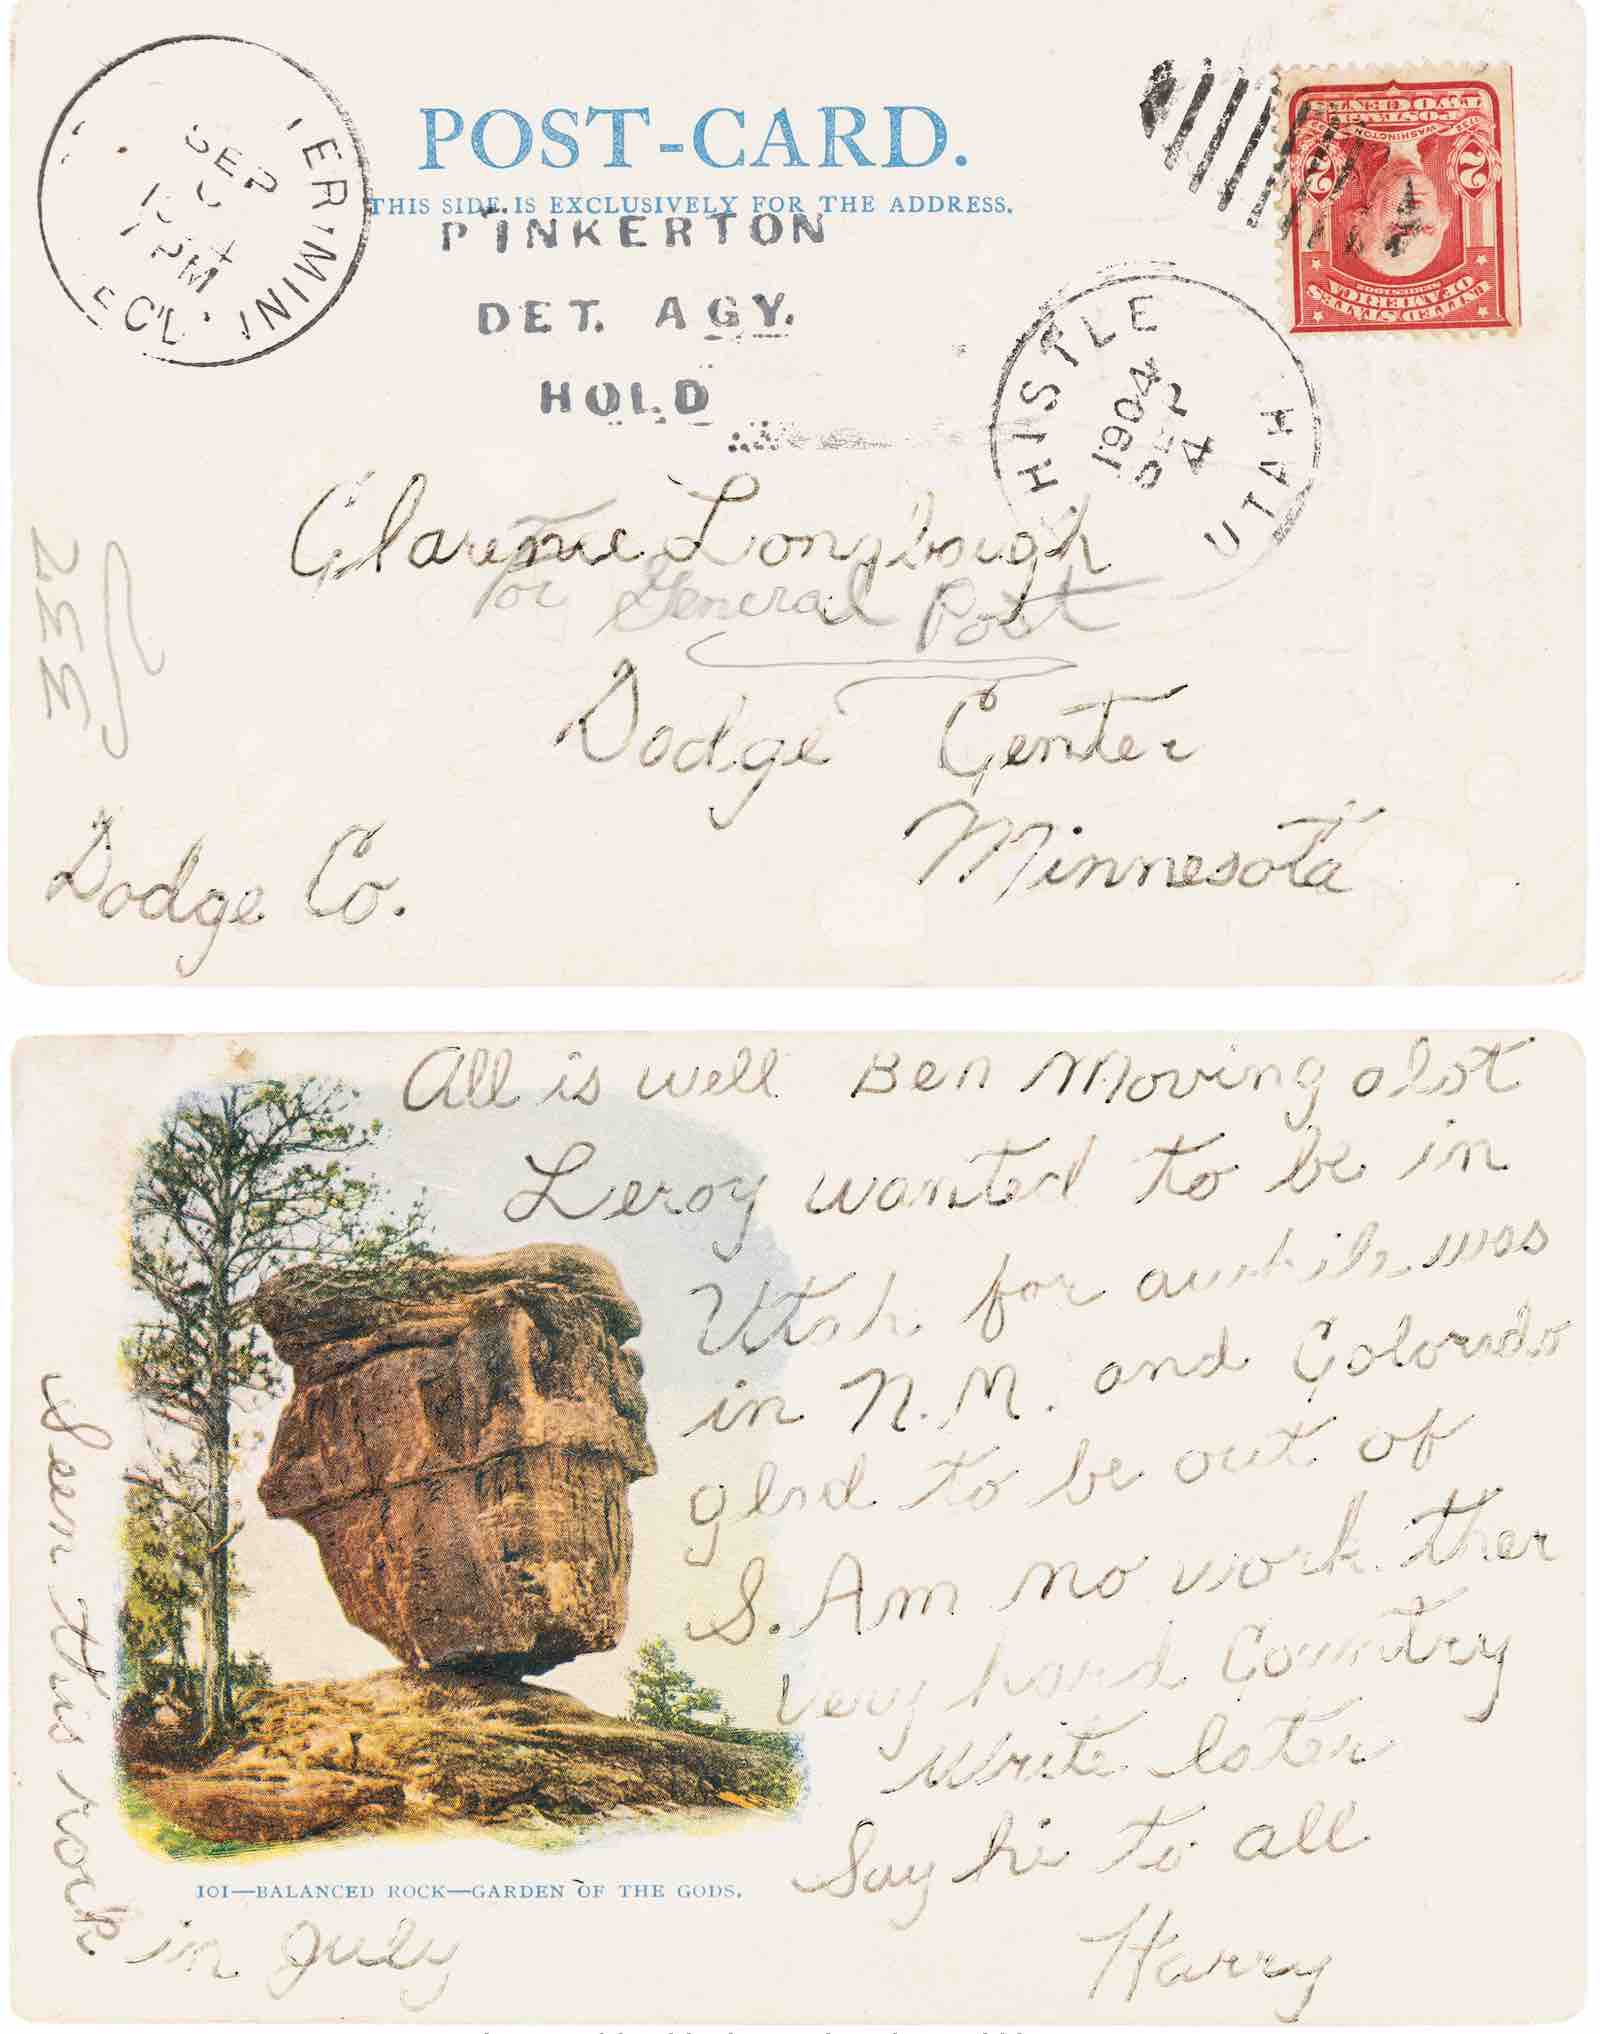 POST-CARD.
THIS SIDE IS EXCLUSIVELY FOR THE ADDRESS.
PINKERTON
DET. AGY.
HOLD
SEP
1 PM
HISTLE
UTAH
1904
4
UNITED STATES
OF AMERICA
WASHINGTON
POSTAGE
TWO CENTS
2 2
Clarence Longbaugh
or General Post
Dodge Center
Minnesota
Dodge Co.
All is well Ben Moving alot
Leroy wanted to be in
Utah for awhile was
in N.M. and Colorado
glad to be out of
S. Am no work ther
Very hard Country
Write later
Say hi to all
Harry
Seen this rock
in July
101—BALANCED ROCK—GARDEN OF THE GODS.